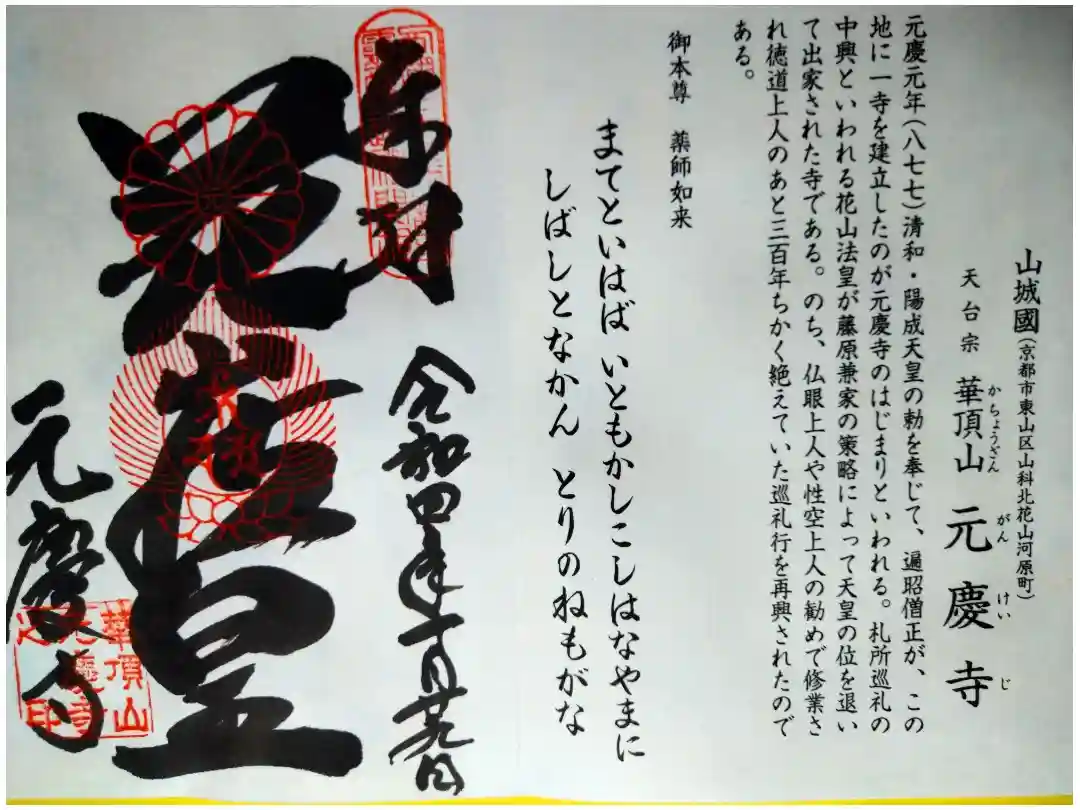 山城國(京都市東山区山科北花山河原町)
天台宗 華頂山 元慶寺
かちょうざん がんけいじ
元慶元年(八七七)清和・陽成天皇の勅を奉じて、遍昭僧正が、この
地に一寺を建立したのが元慶寺のはじまりといわれる。札所巡礼の
中興といわれる花山法皇が藤原兼家の策略によって天皇の位を退い
て出家された寺である。のち、仏眼上人や性空上人の勧めで修業さ
れ徳道上人のあと三百年ちかく絶えていた巡礼行を再興されたので
ある。
御本尊 薬師如来
まてといはば いともかしこしはなやまに
しばしとなかん とりのねもがな
奉拝
令和四年十月廿九日
花山法皇
元慶寺
華頂山
元慶寺
之印